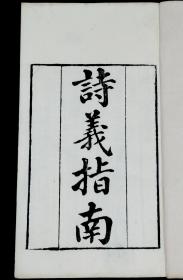 詩義指南